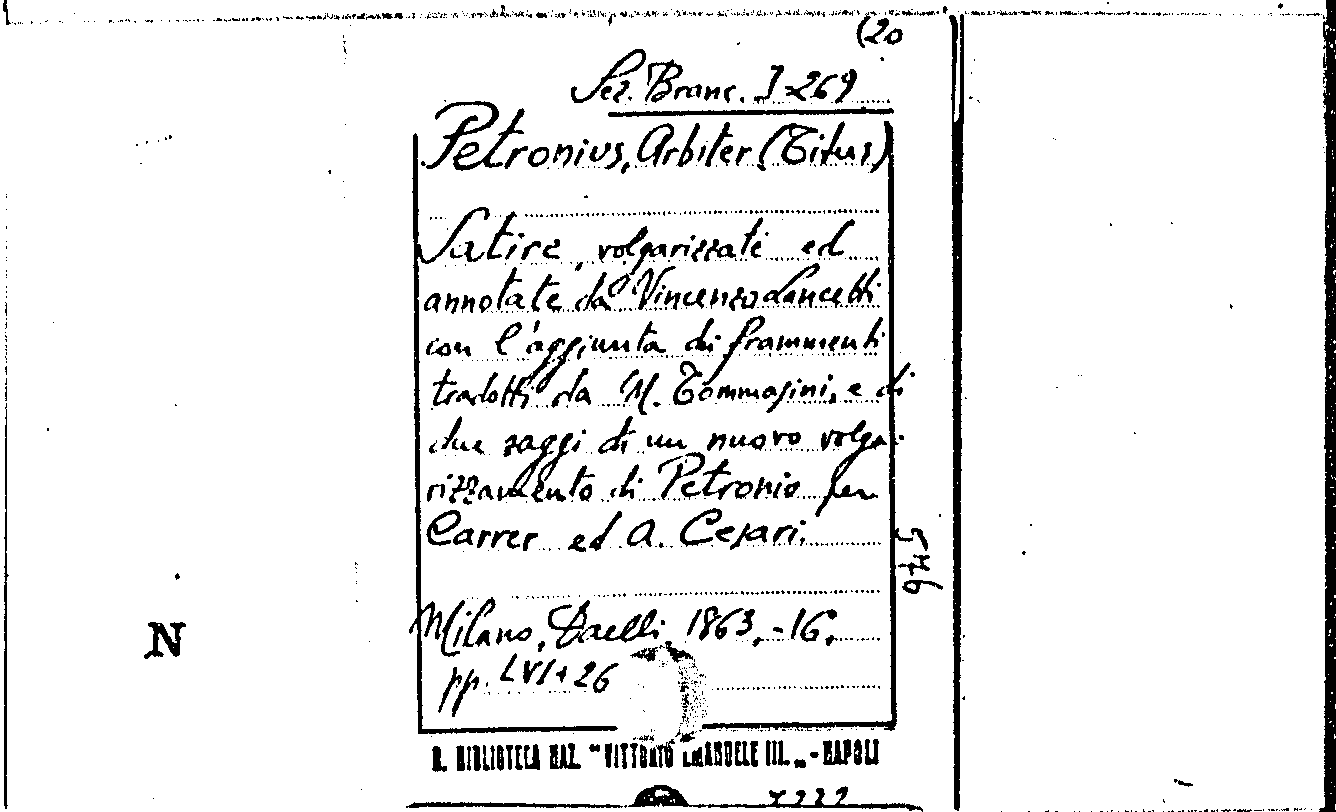 (20
Sez. Branc. I 269
Petronius, Arbiter (Titus)
Satire, volgarizzate ed
annotate da Vincenzo Lancetti
con l'aggiunta di frammenti
tradotti da M. Tommasini, e di
due saggi di un nuovo volga-
rizzamento di Petronio per
Carrer ed A. Cesari.
Milano, Daelli, 1863, -16,
pp. LVI + 26
546
N
R. BIBLIOTECA NAZ. "VITTORIO EMANUELE III." - NAPOLI